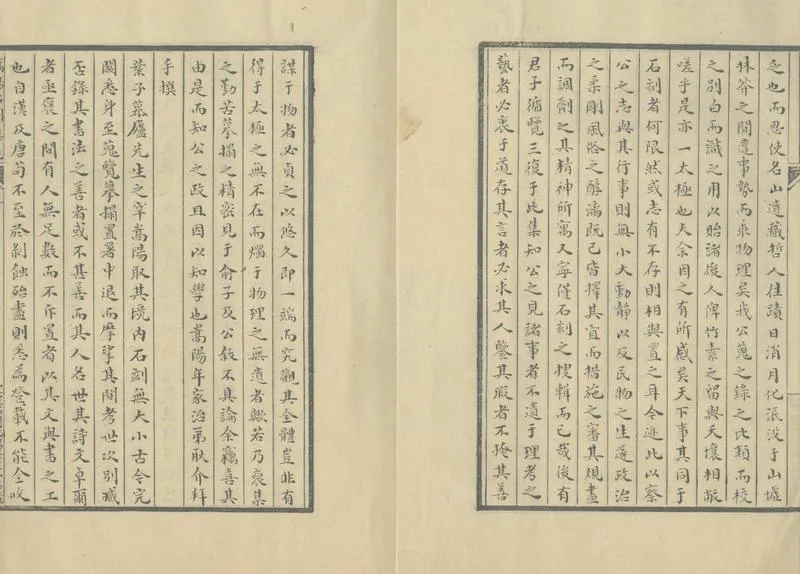 之也而忍使名山遺藏哲人往蹟日消月化泯没于山墟
林莽之間違事勢而乖物理矣我公蒐之錄之比類而校
之別白而識之用以貽諸後人俾竹素之留與天壤相敝
嗟乎是亦一太極也夫余因之有所感矣天下事其同于
石刻者何限然或志有不存則相與置之耳今迹此以察
公之志與其行事則無小大動静以及民物之生遂政治
之柔剛風俗之醇漓既已皆擇其宜而措施之審其規畫
而調劑之其精神所寓又寧僅石刻之搜輯而已哉後有
君子循覽三復于此集知公之見諸事者不遺于理考之
藝者必衷于道存其言者必求其人鑒其瑕者不掩其善
謀于物者必貞之以悠久即一端而究觀其全體豈非有
得于太極之無不在而燭于物理之無遺者歟若乃裒集
之勤苦摹搨之精密見于俞子及公敘不具論余竊喜其
由是而知公之政且因以知學也嵩陽年家治弟耿介拜
手撰
葉子慕廬先生之宰嵩陽取其境内石刻無大小古今完
闕悉身至蒐覽摹搨置署中退而摩挲其間考世次別臧
否錄其書法之善者或不甚善而其人名世其詩文卓爾
者亟褒之間有人無足數而不斥置者以其文與書之工
也自漢及唐苟不至於剝蝕殆盡則悉為登載不能全收